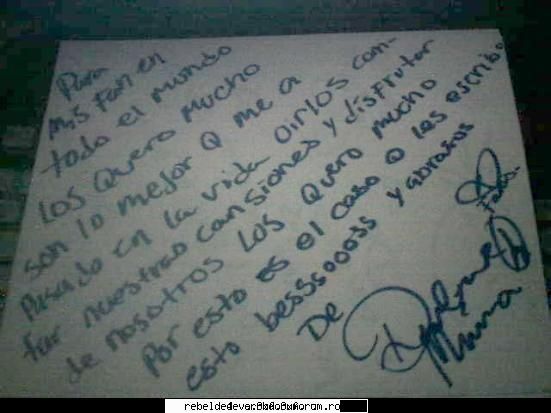 Para
Mis Fan en
todo el mundo
Los Quero mucho
son lo mejor Q me a
Pasado en la vida Oirlos can-
tar nuestras cansiones y disfrutar
de nosotros Los Quero mucho
Por esto es el caso Q les escribo
esto bessssooooss y abrazos
De
Fans.